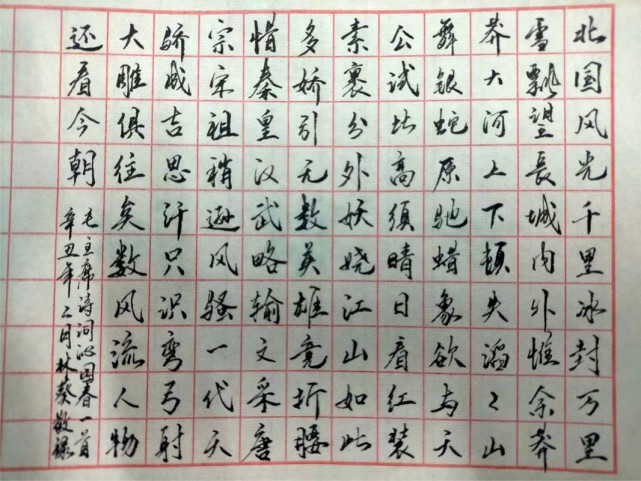 北国风光千里冰封万里
雪飘望長城内外惟余莽
莽大河上下顿失滔〻山
舞银蛇原驰蜡象欲与天
公试比高须晴日看红装
素裹分外妖娆江山如此
多娇引无数英雄竞折腰
惜秦皇汉武略输文采唐
宗宋祖稍逊风骚一代天
骄成吉思汗只识弯弓射
大雕俱往矣数风流人物
还看今朝
毛主席诗词沁园春一首
辛丑年二月林葵敬录